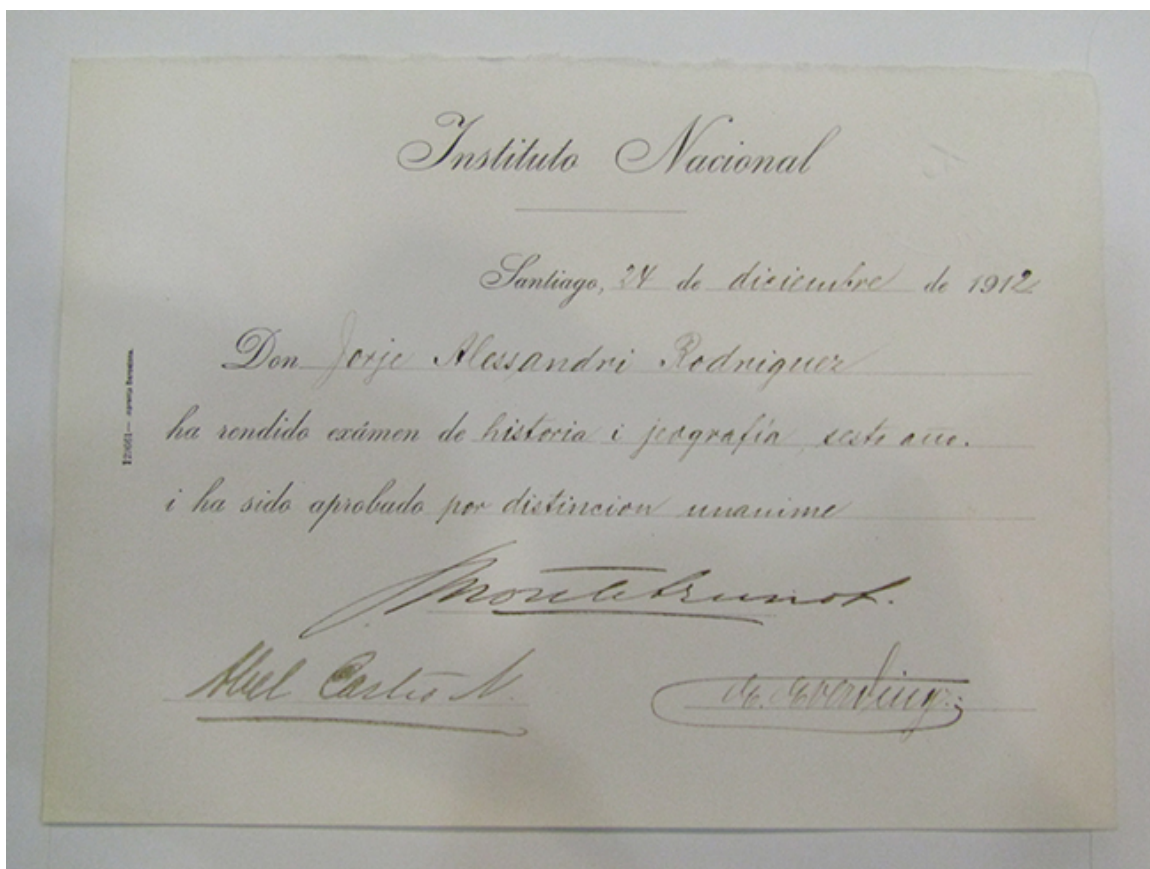 Instituto Nacional
Santiago, 24 de diciembre de 1912
Don Jorje Alessandri Rodriguez
ha rendido exámen de historia i jeografía sesto año.
i ha sido aprobado por distincion unanime
Montebruno
Abel Castro N.
Barcelona